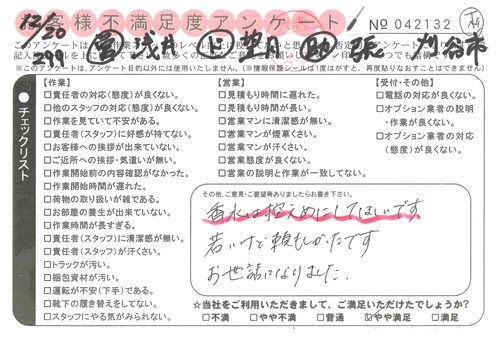 お客様不満足度アンケート
No 042132
12/20
299
営 浅井
助 張
刈谷市
※このアンケートは、アンケート目的以外には使用いたしません。(※情報保護シールは1度はがすと、再度貼りなおすことはできません)
●チェックリスト
【作業】
□責任者の対応(態度)が良くない。
□他のスタッフの対応(態度)が良くない。
□作業を見ていて不安がある。
□責任者(スタッフ)に好感が持てない。
□お客様への挨拶が出来ていない。
□ご近所への挨拶・気遣いが無い。
□作業開始前の内容確認がなかった。
□作業開始時間が遅れた。
□荷物の取り扱いが雑である。
□お部屋の養生が出来ていない。
□作業時間が長すぎる。
□責任者(スタッフ)に清潔感が無い。
□責任者(スタッフ)が汗くさい。
□トラックが汚い。
□梱包資材が汚い。
□運転が不安(下手)である。
□靴下の履き替えをしてない。
□スタッフにやる気がみられない。
【営業】
□見積もり時間に遅れた。
□見積もり時間が長い。
□営業マンに清潔感が無い。
□営業マンが煙草くさい。
□営業マンが汗くさい。
□営業態度が良くない。
□営業の説明と作業が一致してない。
【受付・その他】
□電話の対応が良くない。
□オプション業者の説明
・作業が良くない。
□オプション業者の対応
(態度)が良くない。
その他、ご意見・ご要望等ありましたらお書き下さい。
香水は控えめにしてほしいです
若いけど頼もしかったです
お世話になりました。
☆当社をご利用いただきまして、ご満足いただけたでしょうか?
□不満 □やや不満 □普通 ☑やや満足 □満足